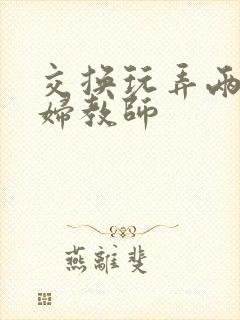 交换玩弄兩
婦教師
燕離斐